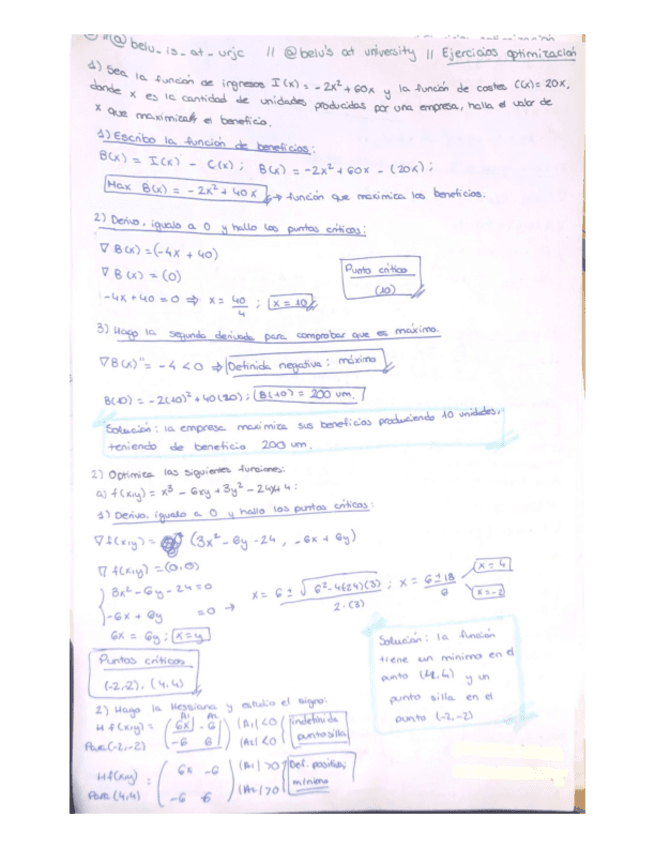 @belu_is_at_urjc // @belu's at university // Ejercicios optimización
1) Sea la función de ingresos I(x) = -2x² + 60x y la función de costes C(x) = 20x,
donde x es la cantidad de unidades producidas por una empresa, halla el valor de
x que maximiza el beneficio.
1) Escribo la función de beneficios:
B(x) = I(x) - C(x) ; B(x) = -2x² + 60x - (20x) ;
Max B(x) = -2x² + 40x → función que maximiza los beneficios.
2) Derivo, igualo a 0 y hallo los puntos críticos:
∇ B(x) = (-4x + 40)
∇ B(x) = (0)
Punto crítico
(10)
-4x + 40 = 0 ⇒ x = 40/4 ; x = 10
3) Hago la segunda derivada para comprobar que es máximo.
∇B(x)'' = -4 < 0 ⇒ Definida negativa: máximo
B(10) = -2(10)² + 40(10) ; B(10) = 200 um.
Solución: la empresa maximiza sus beneficios produciendo 10 unidades,
teniendo de beneficio 200 um.
2) Optimiza las siguientes funciones:
a) f(x,y) = x³ - 6xy + 3y² - 24x + 4 :
1) Derivo, igualo a 0 y hallo los puntos críticos:
∇ f(x,y) = (3x² - 6y - 24 , -6x + 6y)
∇ f(x,y) = (0,0)
3x² - 6y - 24 = 0
-6x + 6y = 0 → x = 6 ± √6² - 4(24)(3) / 2·(3) ; x = 6 ± 18 / 6
x = 4
x = -2
6x = 6y ; x = y
Puntos críticos
(-2,-2), (4,4)
Solución: la función
tiene un mínimo en el
punto (4,4) y un
punto silla en el
punto (-2,-2)
2) Hago la Hessiana y estudio el signo:
A1 A2
H f(x,y) = (6x -6
Para (-2,-2) -6 6) |A1| < 0 |A2| < 0 indefinida punto silla
Hf(x,y) = (6x -6
Para (4,4) -6 6) |A1| > 0 |A2| > 0 Def. positiva, mínimo